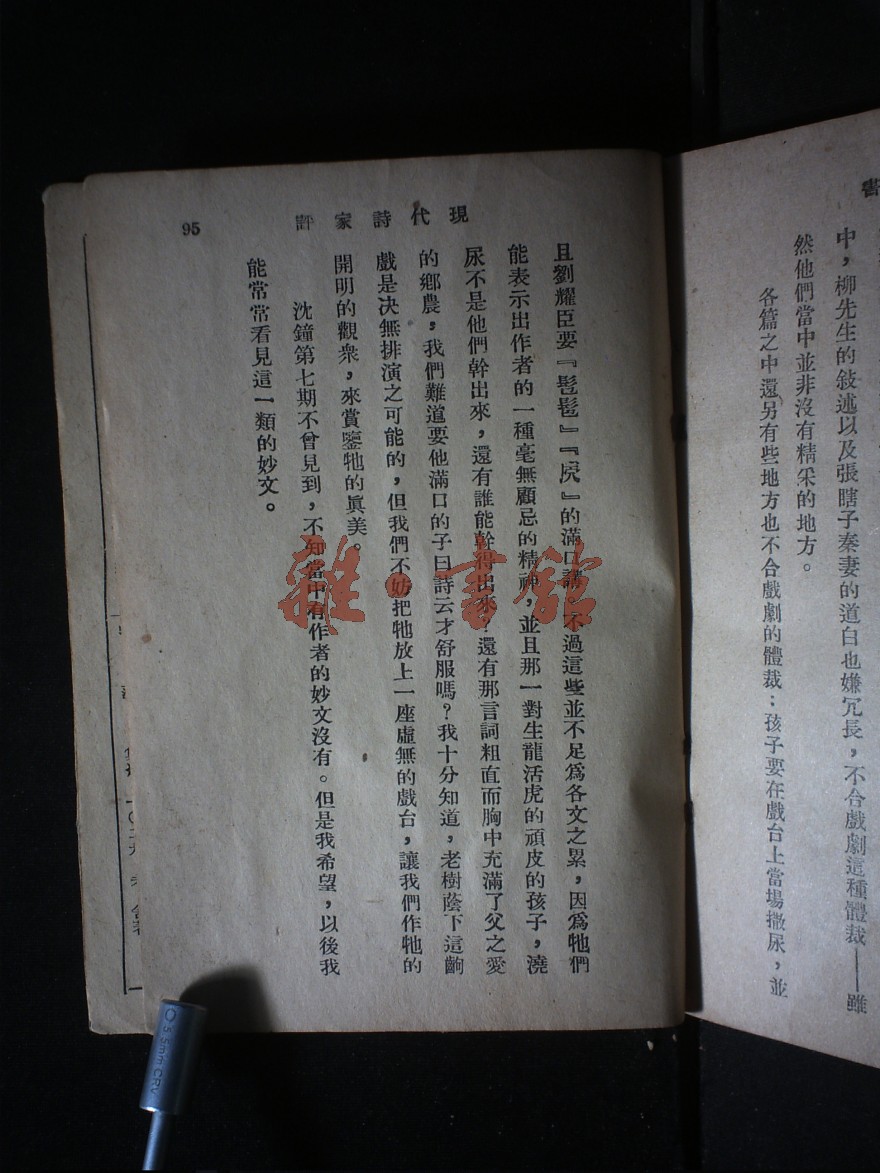 書
中，柳先生的敍述以及張瞎子秦妻的道白也嫌冗長，不合戲劇這種體裁——雖
然他們當中並非沒有精采的地方。
各篇之中還另有些地方也不合戲劇的體裁：孩子要在戲台上當場撒尿，並
現代詩家評
95
且劉耀臣要『髱髱』『㞙』的滿口講 不過這些並不足爲各文之累，因爲牠們
能表示出作者的一種毫無顧忌的精神，並且那一對生龍活虎的頑皮的孩子，澆
尿不是他們幹出來，還有誰能幹得出來？還有那言詞粗直而胸中充滿了父之愛
的鄉農，我們難道要他滿口的子曰詩云才舒服嗎？我十分知道，老樹蔭下這齣
戲是决無排演之可能的，但我們不妨把牠放上一座虛無的戲台，讓我們作牠的
開明的觀衆，來賞鑒牠的眞美。
沈鐘第七期不曾見到，不知當中有作者的妙文沒有。但是我希望，以後我
能常常看見這一類的妙文。
雜·書館
5.5mm CRV